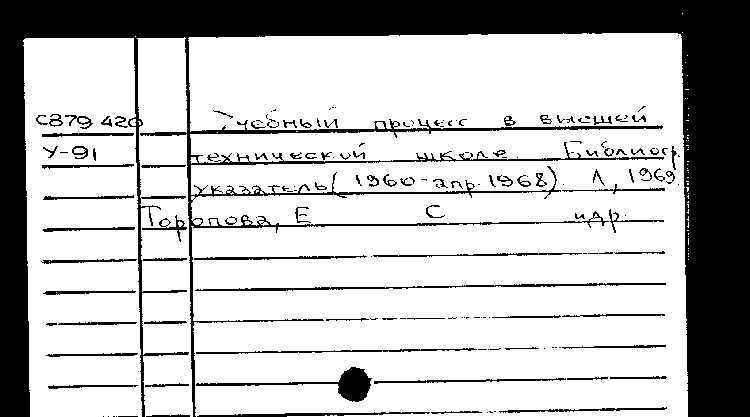 С879 420 Учебный процесс в высшей
У-91 технической школе Библиогр.
указатель (1960-апр. 1968) Л, 1969
Торопова, Е С и др.